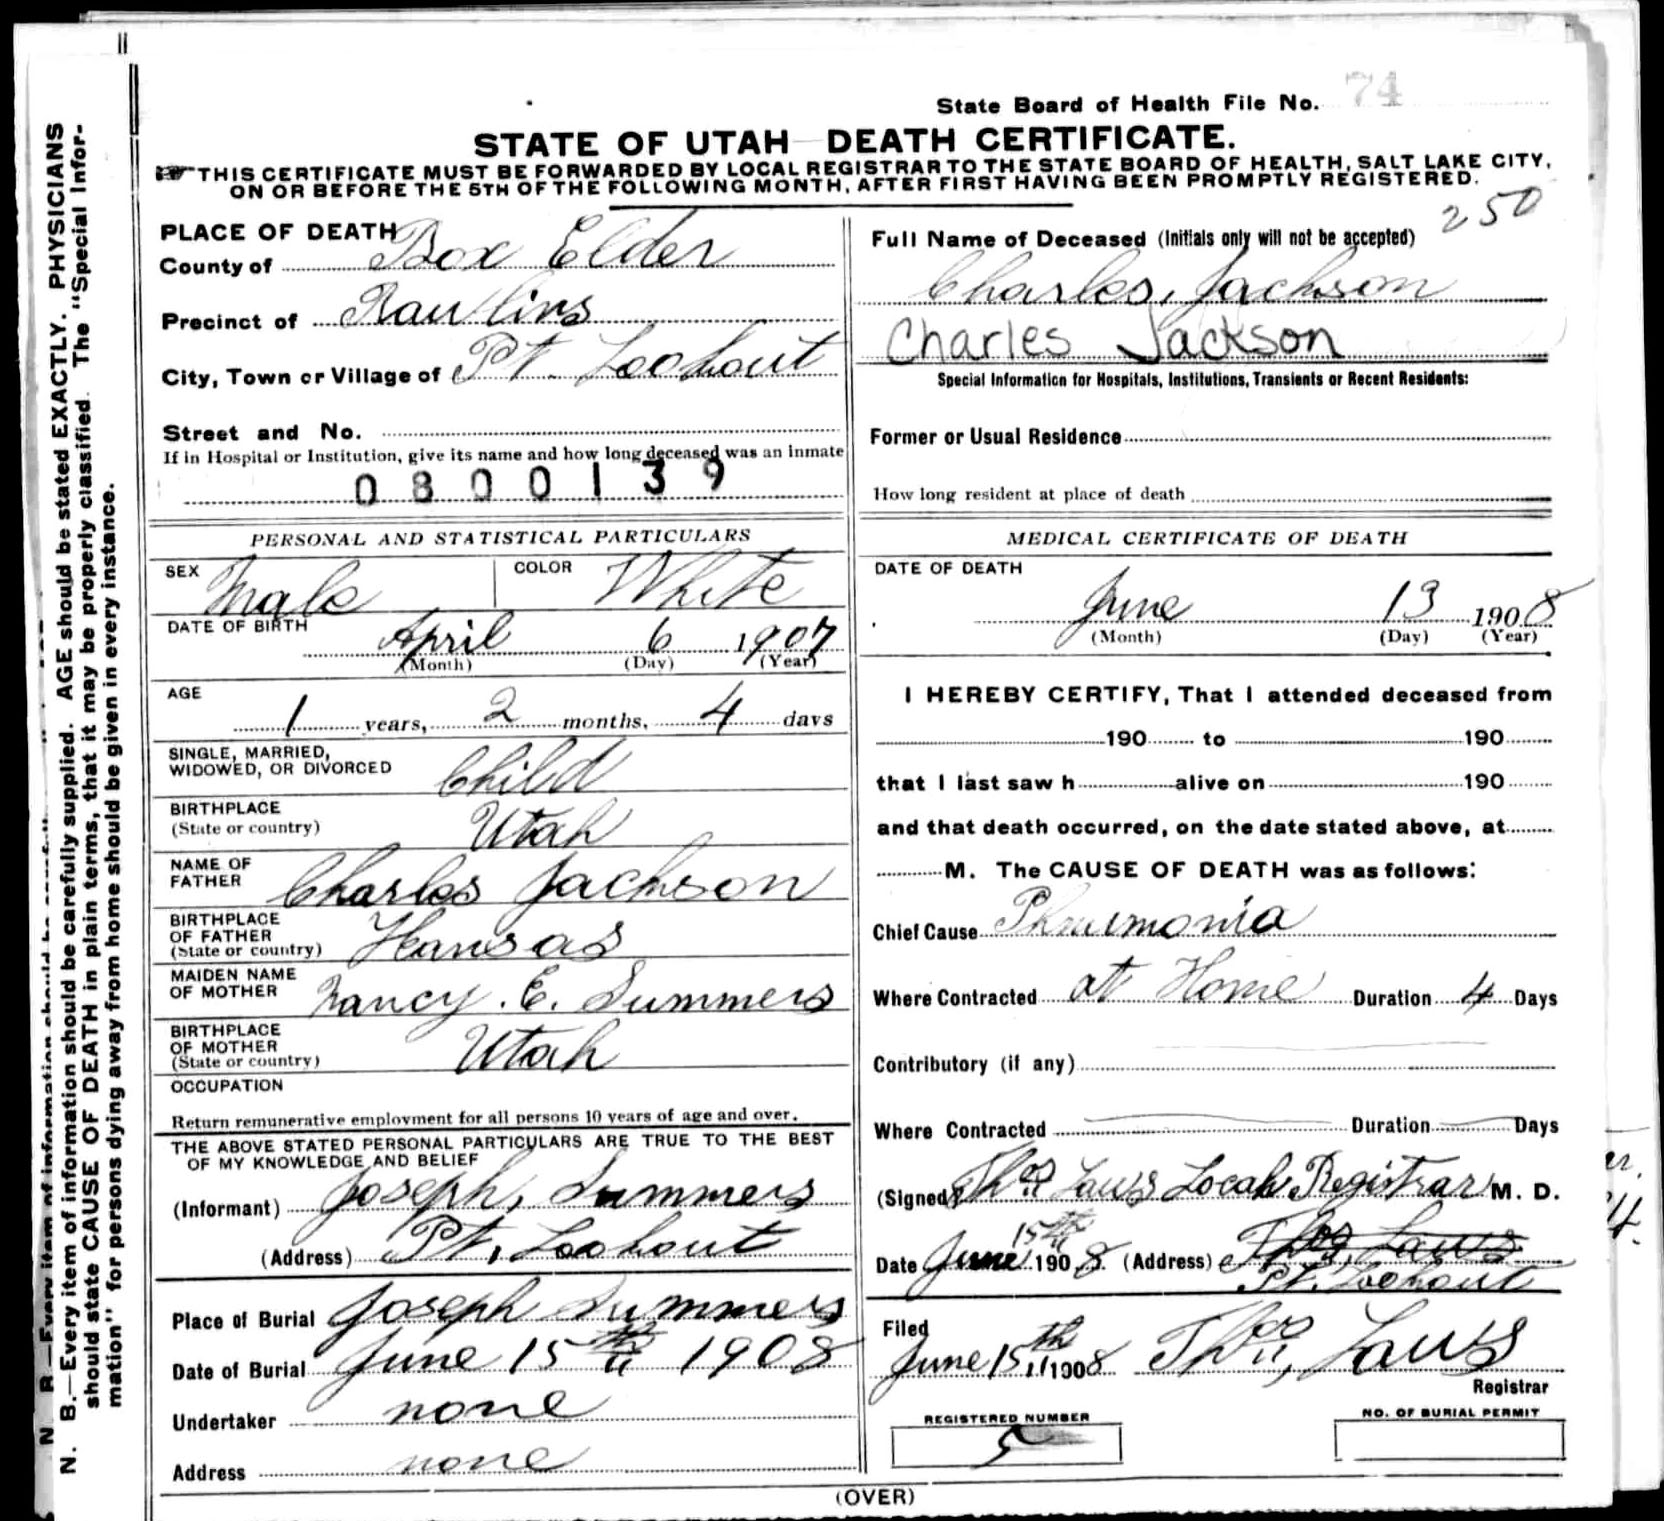 State Board of Health File No. 74
STATE OF UTAH DEATH CERTIFICATE.
THIS CERTIFICATE MUST BE FORWARDED BY LOCAL REGISTRAR TO THE STATE BOARD OF HEALTH, SALT LAKE CITY,
ON OR BEFORE THE 5TH OF THE FOLLOWING MONTH, AFTER FIRST HAVING BEEN PROMPTLY REGISTERED.
250
PLACE OF DEATH
County of Box Elder
Precinct of Rawlins
City, Town or Village of Pt. Lookout
Street and No.
If in Hospital or Institution, give its name and how long deceased was an inmate
0800139
Full Name of Deceased (Initials only will not be accepted)
Charles, Jackson
Charles Jackson
Special Information for Hospitals, Institutions, Transients or Recent Residents:
Former or Usual Residence
How long resident at place of death
PERSONAL AND STATISTICAL PARTICULARS
SEX Male COLOR White
DATE OF BIRTH April 6 1907
(Month) (Day) (Year)
AGE
1 years, 2 months, 4 days
SINGLE, MARRIED,
WIDOWED, OR DIVORCED Child
BIRTHPLACE
(State or country) Utah
NAME OF
FATHER Charles Jackson
BIRTHPLACE
OF FATHER
(State or country) Kansas
MAIDEN NAME
OF MOTHER Nancy . E. Summers
BIRTHPLACE
OF MOTHER
(State or country) Utah
OCCUPATION
Return remunerative employment for all persons 10 years of age and over.
THE ABOVE STATED PERSONAL PARTICULARS ARE TRUE TO THE BEST
OF MY KNOWLEDGE AND BELIEF
(Informant) Joseph, Summers
(Address) Pt, Lookout
Place of Burial Joseph Summers
Date of Burial June 15th 1908
Undertaker none
Address none
MEDICAL CERTIFICATE OF DEATH
DATE OF DEATH
June 13 1908
(Month) (Day) (Year)
I HEREBY CERTIFY, That I attended deceased from
190 to 190
that I last saw h alive on 190
and that death occurred, on the date stated above, at
M. The CAUSE OF DEATH was as follows:
Chief Cause Phnumonia
Where Contracted at Home Duration 4 Days
Contributory (if any)
Where Contracted Duration Days
(Signed) Thos Laws Local Registrar M. D.
Date June 15th 1908. (Address) Thos, Laws
Pt. Lookout
Filed
June 15th 1908 Thos, Laws
Registrar
REGISTERED NUMBER
5
NO. OF BURIAL PERMIT
(OVER)
N. B.—Every item of information should be carefully supplied. AGE should be stated EXACTLY. PHYSICIANS
should state CAUSE OF DEATH in plain terms, that it may be properly classified. The "Special Infor-
mation" for persons dying away from home should be given in every instance.